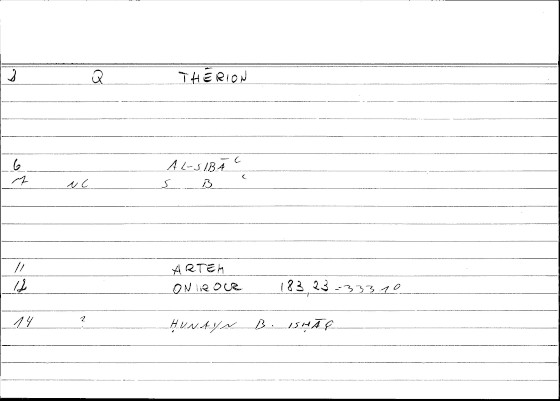 2 Q THĒRION
6 AL-SIBĀʿ
7 NC S B ʿ
11 ARTEM
12 ONIROCR 183,23-333 10
14 ? ḤUNAYN B. ISḤĀQ